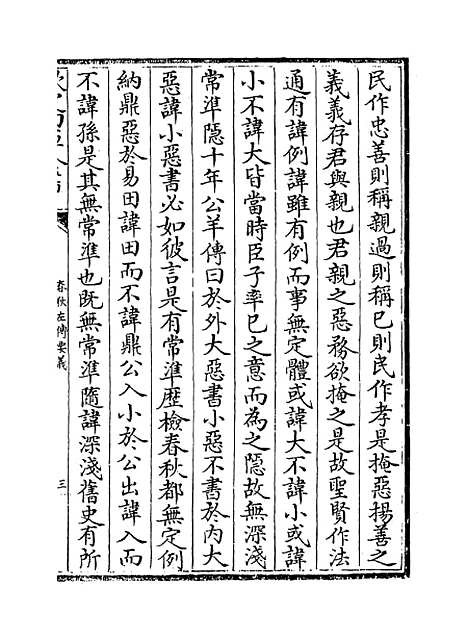 民作忠善則稱親過則稱已則民作孝是掩惡揚善之
義義存君與親也君親之惡務欲掩之是故聖賢作法
通有諱例諱雖有例而事無定體或諱大不諱小或諱
小不諱大皆當時臣子率已之意而為之隱故無深淺
常準隱十年公羊傳曰於外大惡書小惡不書於内大
惡諱小惡書必如彼言是有常準歴檢春秋都無定例
納鼎惡於易田諱田而不諱鼎公入小於公出諱入而
不諱孫是其無常準也既無常準隨諱深淺舊史有所
春秋左傳要義
三